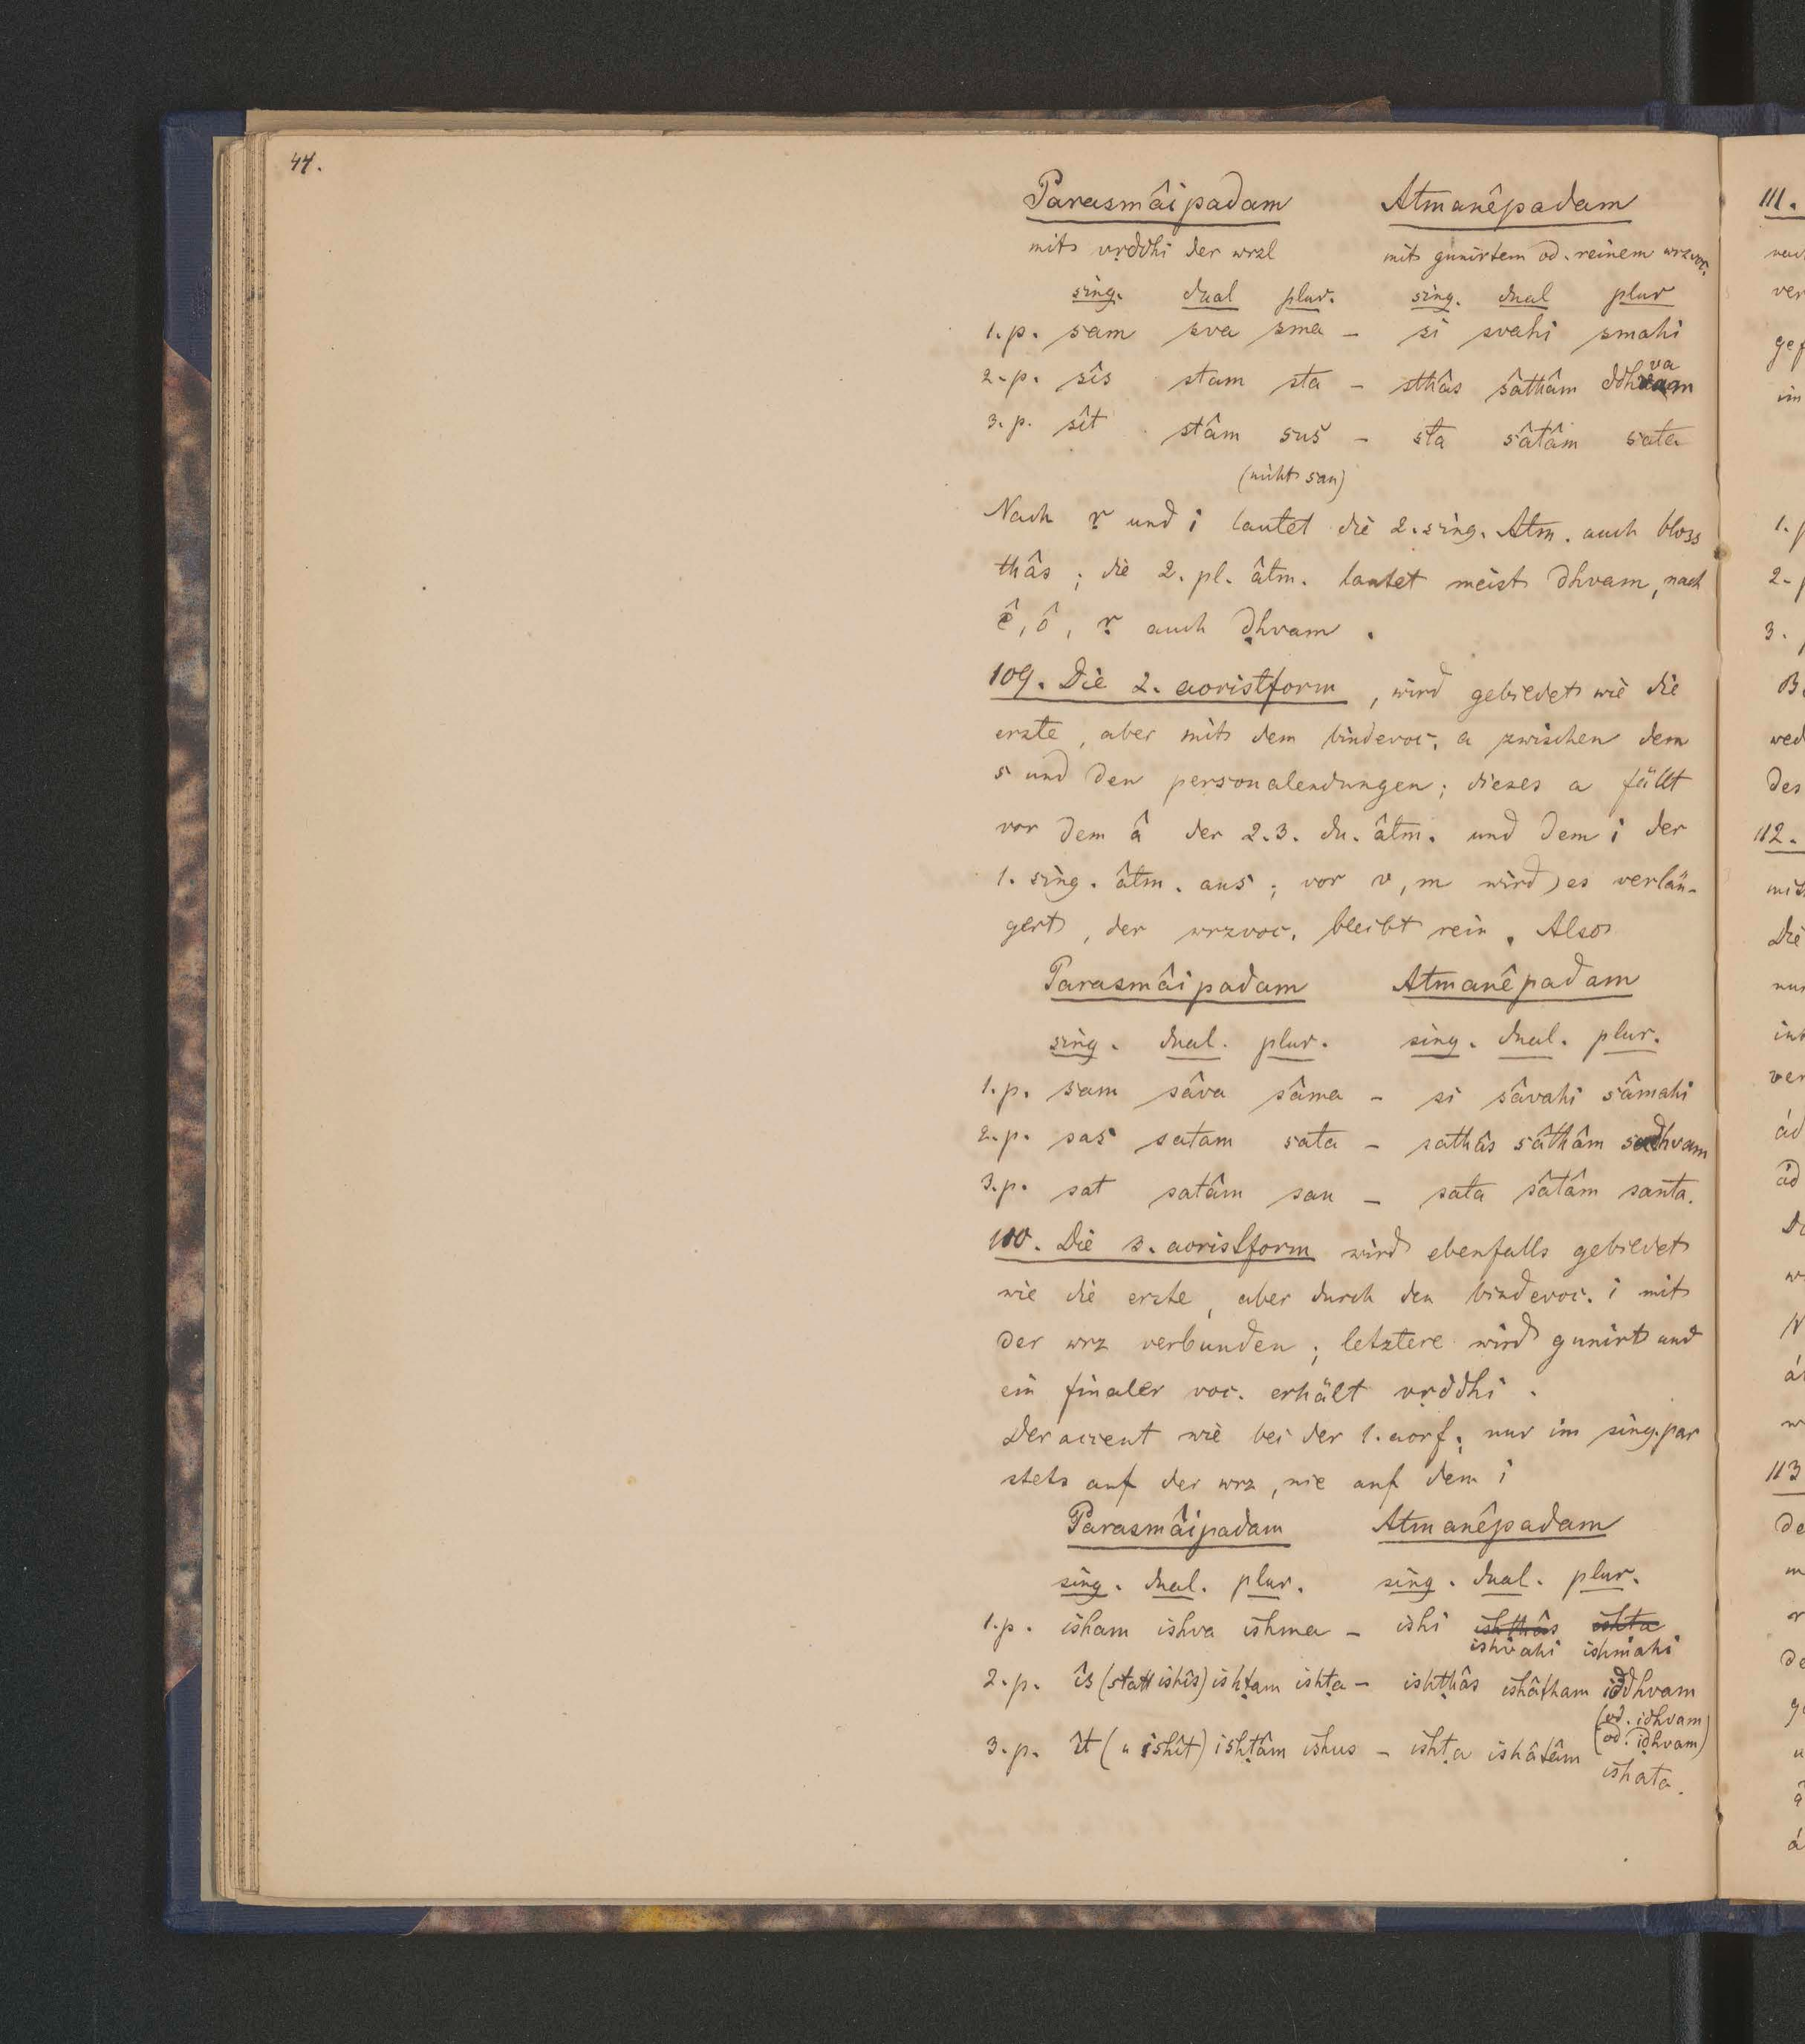 44.
Parasmâipadam Atmanêpadam
mit vṛddhi der wrzl mit gunirtem od. reinem wrzvoc.
sing. dual plur. sing. dual plur
1.p. sam sva sma – si svahi smahi
va
2.p. sîs stam sta – sthâs sâthâm ddhvam
3.p. sît stâm sus – sta sâtâm sata
(nicht san)
Nach ṛ und i lautet die 2. sing. Atm. auch bloss
thâs; die 2. pl. âtm. lautet meist dhvam, nach
ê, ô, ṛ auch ḍhvam.
109. Die 2. aoristform, wird gebildet wie die
erste, aber mit dem bindevoc. a zwischen dem
s und den personalendungen; dieses a fällt
vor dem â der 2.3. du. âtm. und dem i der
1. sing. âtm. aus; vor v, m wird es verlän-
gert, der wrzvoc. bleibt rein. Also
Parasmâipadam Atmanêpadam
sing. dual. plur. sing. dual. plur.
1.p. sam sâva sâma – si sâvahi sâmahi
2.p. sas satam sata – sathâs sâthâm sadhvam
3.p. sat satâm san – sata sâtâm santa.
110. Die 3. aoristform wird ebenfalls gebildet
wie die erste, aber durch den bindevoc. i mit
der wrz verbunden; letztere wird gunirt und
ein finaler voc. erhält vṛddhi.
Der accent wie bei der 1. aorf; nur im sing. par
stets auf der wrz, nie auf dem i
Parasmâipadam Atmanêpadam
sing. dual. plur. sing. dual. plur.
1.p. isham ishva ishma – ishi ishthâs ishta
ishvahi ishmahi
2.p. îs (statt ishîs) ishṭam ishṭa – ishṭhâs ishâtham iddhvam
(od. idhvam)
(od. iḍhvam)
3.p. ît (" ishît) ishṭâm ishus – ishṭa ishâtâm
ishata.
111.
1.p
2.p
3.
des
112.
Die
113